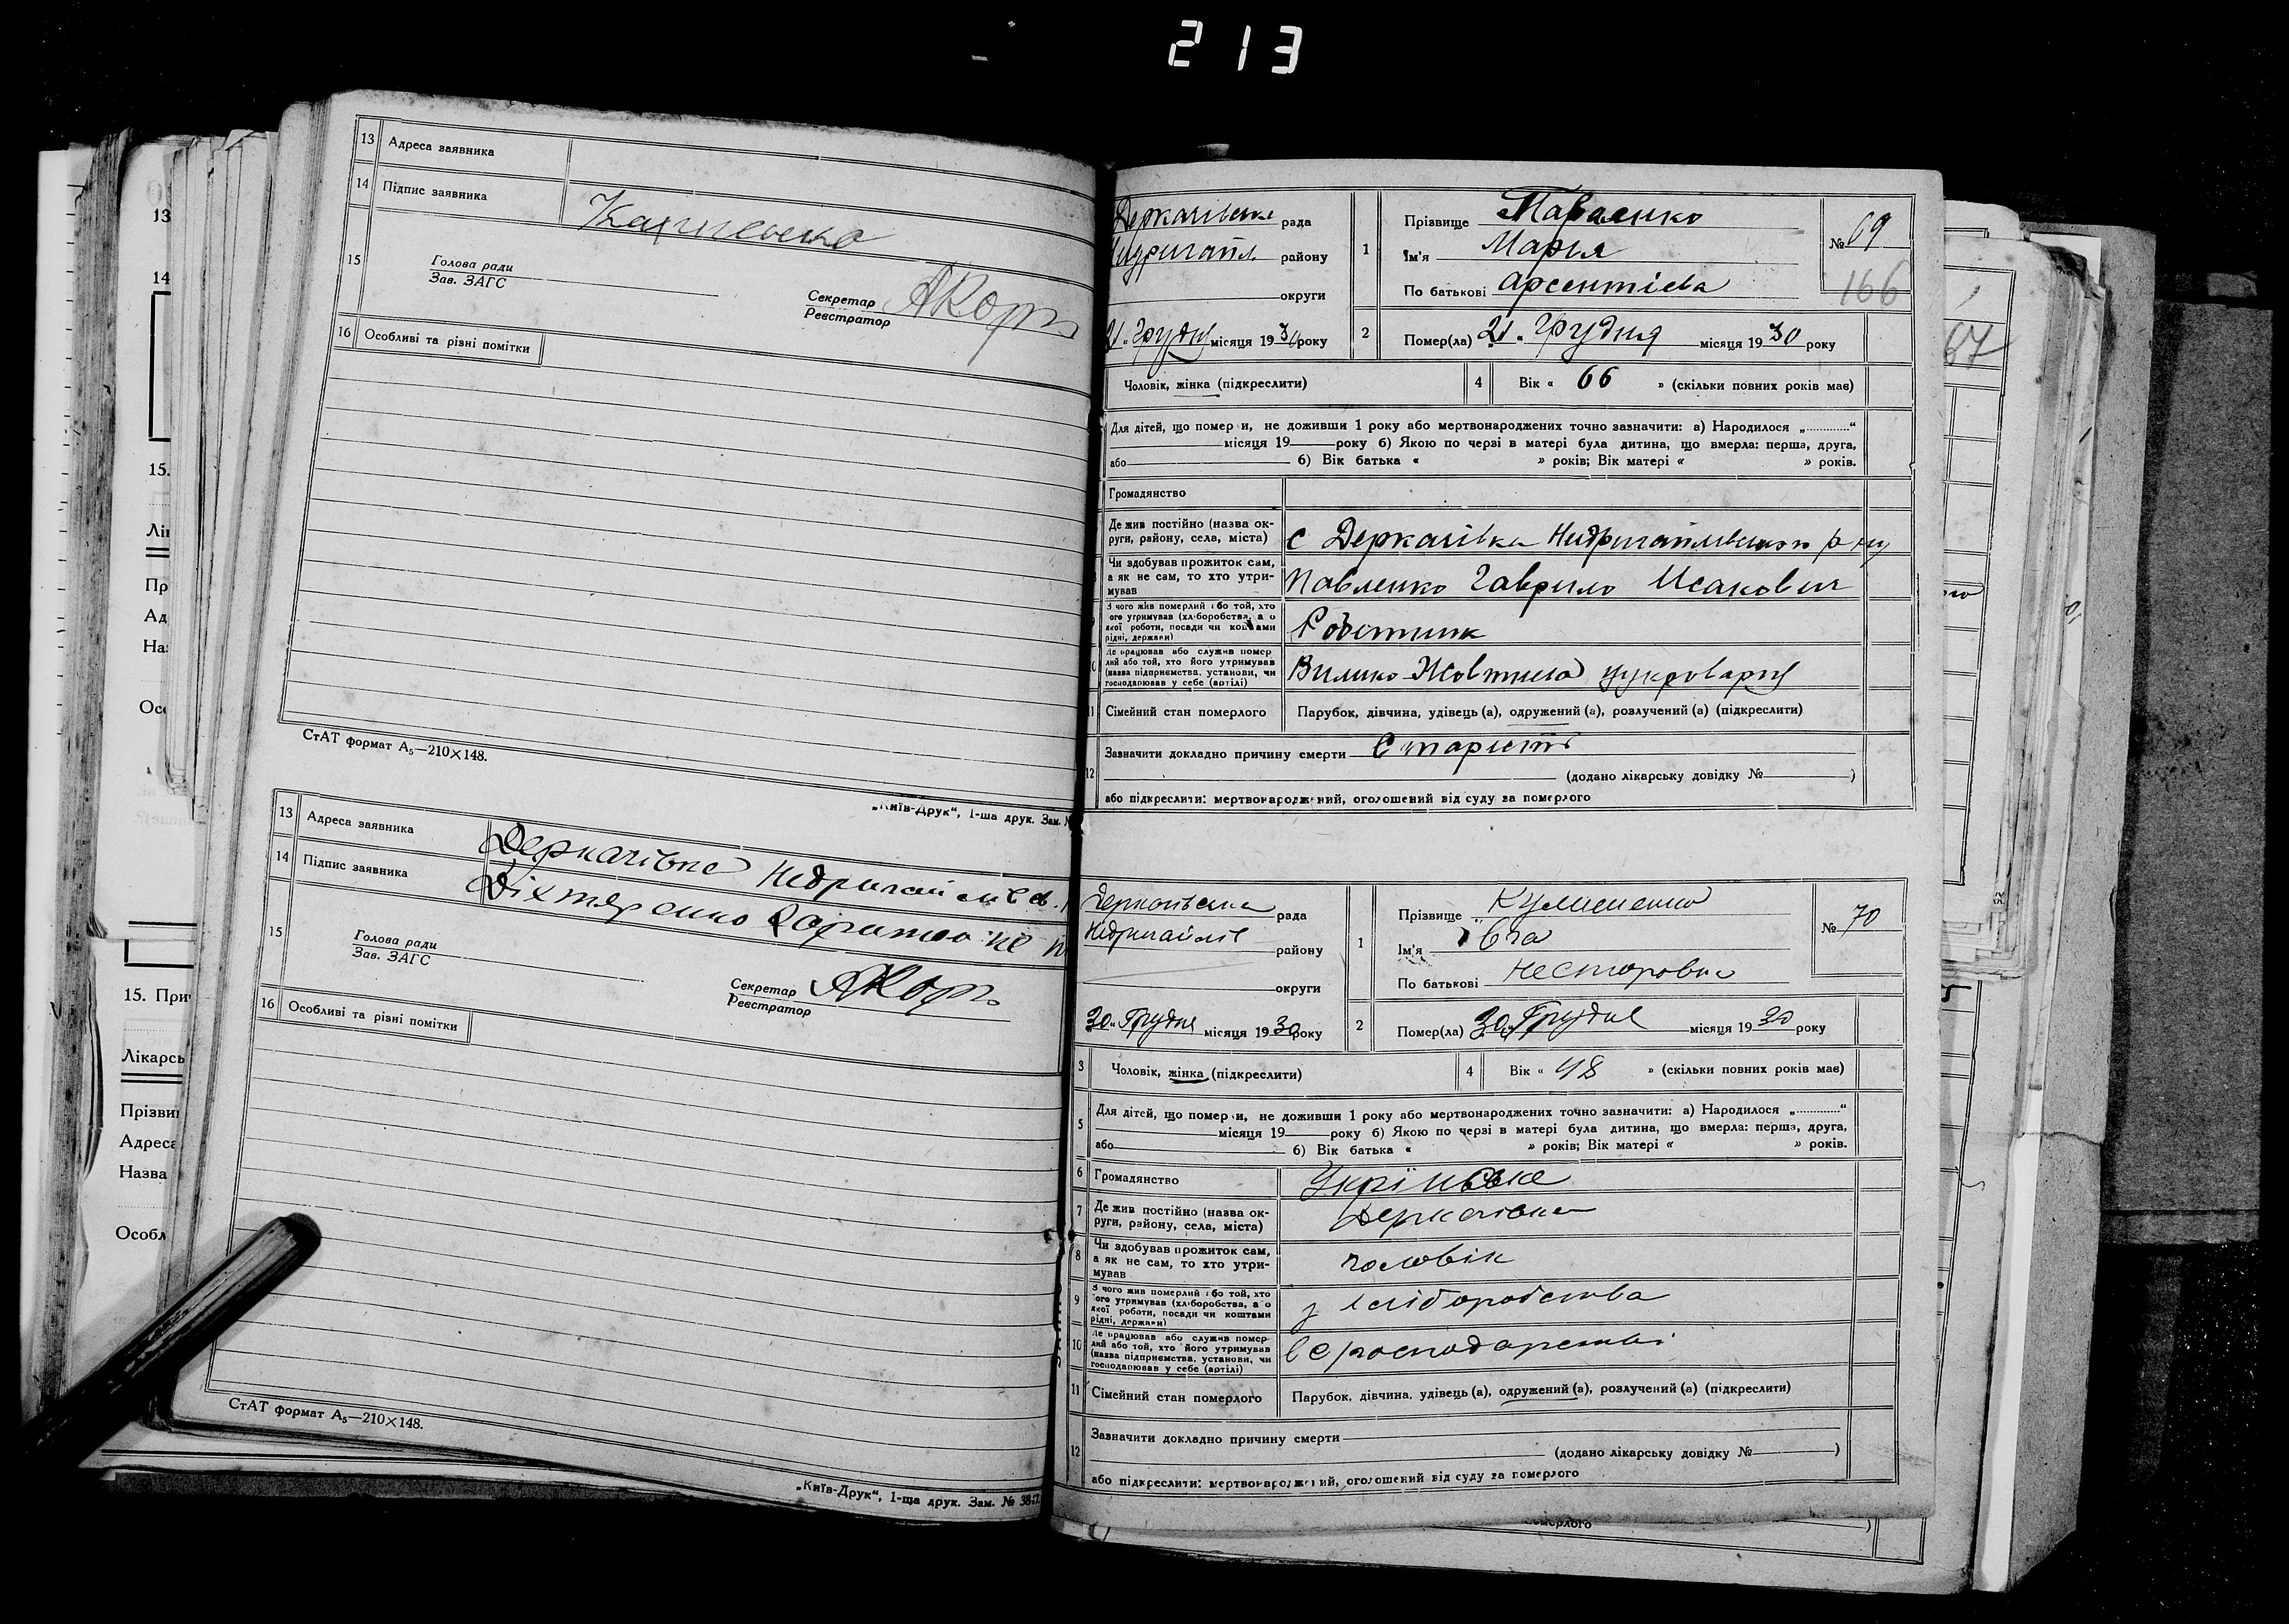 213
13 Адреса заявника
14 Підпис заявника
15 Голова ради
Зав. ЗАГС
Секретар АКорж
Реєстратор
16 Особливі та різні помітки
СтАТ формат А₅—210×148.
„Київ-Друк“, 1-ша друк. Зам.
13 Адреса заявника Деркачівка Недригайлівс.
14 Підпис заявника Діхтяренко
15 Голова ради
Зав. ЗАГС
Секретар АКорж
Реєстратор
16 Особливі та різні помітки
СтАТ формат А₅—210×148.
„Київ-Друк“, 1-ша друк. Зам. №
13
14
15.
Лі
Пр
Ад
На
Ос
15. При
Лікарсь
Прізви
Адреса
Назва
Особл
Деркачівська рада
Недригайл. району
округи
21 „ Грудня місяця 1930 року
1 Прізвище Павленко
Ім'я Марія
По батькові Арсентієва
№ 69
166
67
2 Помер(ла) „21“ Грудня місяця 1930 року
Чоловік, жінка (підкреслити)
4 Вік « 66 » (скільки повних років має)
Для дітей, що померли, не доживши 1 року або мертвонароджених точно зазначити: а) Народилося „............“
місяця 19 року б) Якою по черзі в матері була дитина, що вмерла: перша, друга,
або б) Вік батька « » років; Вік матері « » років.
Громадянство
Де жив постійно (назва ок-
руги, району, села, міста) с Деркачівка Недригайлівського р-ну
Чи здобував прожиток сам,
а як не сам, то хто утри-
мував Павленко Гаврило Исакович
З чого жив померлий або той, хто
його утримував (хліборобства, або
якої роботи, посади чи коштами
рідні, держави) Робітник
Де працював або служив помер-
лий або той, хто його утримував
(назва підприємства, установи, чи
господарював у себе (артілі)
11 Сімейний стан померлого Парубок, дівчина, удівець (а), одружений (а), розлучений (а) (підкреслити)
12 Зазначити докладно причину смерти Старість
(додано лікарську довідку № )
або підкреслити: мертвонароджений, оголошений від суду за померлого
Деркачівська рада
Недригайлів району
округи
30 „ Грудня місяця 1930 року
1 Прізвище
Ім'я
По батькові Несторовна
№ 70
2 Помер(ла) 30 „ Грудня місяця 1930 року
3 Чоловік, жінка (підкреслити)
4 Вік « 48 » (скільки повних років має)
5 Для дітей, що померли, не доживши 1 року або мертвонароджених точно зазначити: а) Народилося „............“
місяця 19 року б) Якою по черзі в матері була дитина, що вмерла: перша, друга,
або б) Вік батька « » років; Вік матері « » років.
6 Громадянство Україньске
7 Де жив постійно (назва ок-
руги, району, села, міста) Деркачівка
8 Чи здобував прожиток сам,
а як не сам, то хто утри-
мував чоловік
9 З чого жив померлий або той, хто
його утримував (хліборобства, або
якої роботи, посади чи коштами
рідні, держави) з хліборобства
10 Де працював або служив помер-
лий або той, хто його утримував
(назва підприємства, установи, чи
господарював у себе (артілі) в с господарстві
11 Сімейний стан померлого Парубок, дівчина, удівець (а), одружений (а), розлучений (а) (підкреслити)
12 Зазначити докладно причину смерти
(додано лікарську довідку № )
або підкреслити: мертвонароджений, оголошений від суду за померлого